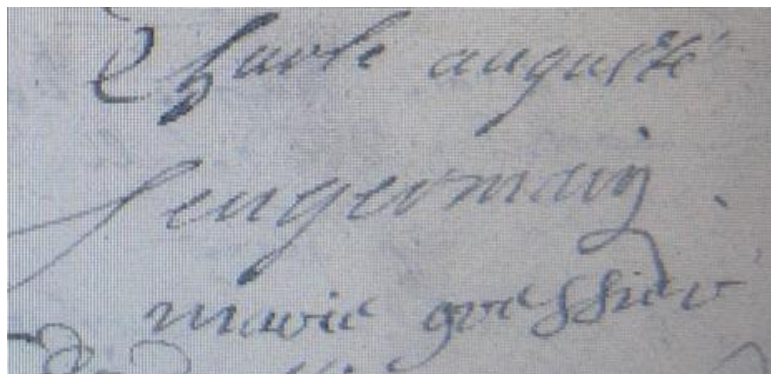 Charle auguste
sengermain
marie gressier